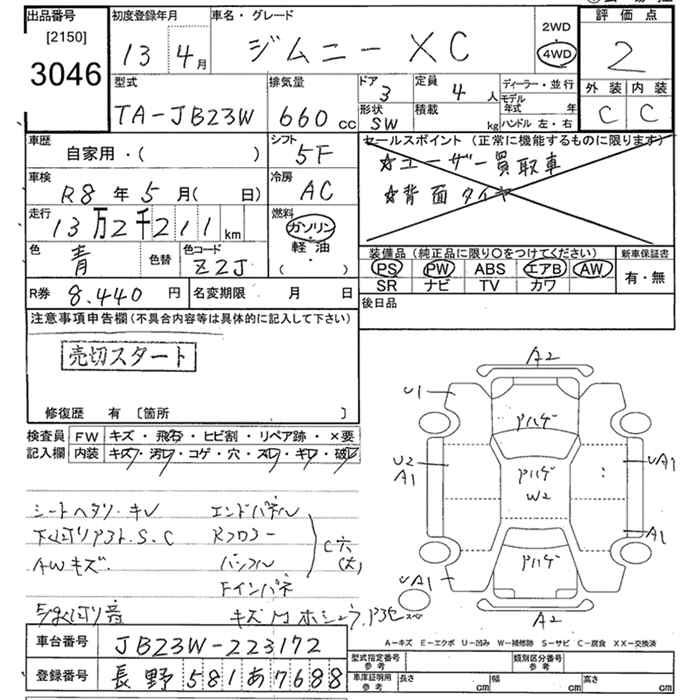 出品番号
[2150]
3046
初度登録年月
13 4月
車名・グレード
ジムニー XC
2WD
4WD
評価点
2
外装 内装
C C
型式
TA-JB23W
排気量
660cc
ドア
3
形状
SW
定員
4人
積載
kg
ディーラー・並行
モデル年式 年
ハンドル 左・右
車歴
自家用・( )
シフト
5F
セールスポイント(正常に機能するものに限ります)
☆ユーザー買取車
☆背面タイヤ
車検
R8年5月( 日)
冷房
AC
走行
13万2千211km
燃料
ガソリン・軽油・( )
色
青
色替
色コード
Z2J
装備品(純正品に限り○をつけてください)
PS PW ABS エアB AW
SR ナビ TV カワ
新車保証書
有・無
R券 8.440円
名変期限 月 日
後日品
注意事項申告欄(不具合内容等は具体的に記入して下さい)
売切スタート
修復歴 有 [箇所 ]
検査員記入欄
FW キズ・飛石・ヒビ割・リペア跡・×要
内装 キズ・汚レ・コゲ・穴・スレ・キレ・破レ
シートヘタリ・キレ
下廻りアフト.S.C
AWキズ
エンドパネル
Rフロアー
Fインパネ
A2
U1
Pハゲ
U2
A1
Pハゲ
W2
UA1
A1
UA1
Pハゲ
A2
スペア
A-キズ E-エクボ U-凹み W-補修跡 S-サビ C-腐食 XX-交換済
車台番号 JB23W-223172
登録番号 長野581あ7688
型式指定番号参考
類別区分番号参考
車庫証明用参考
長さ cm 幅 cm 高さ cm